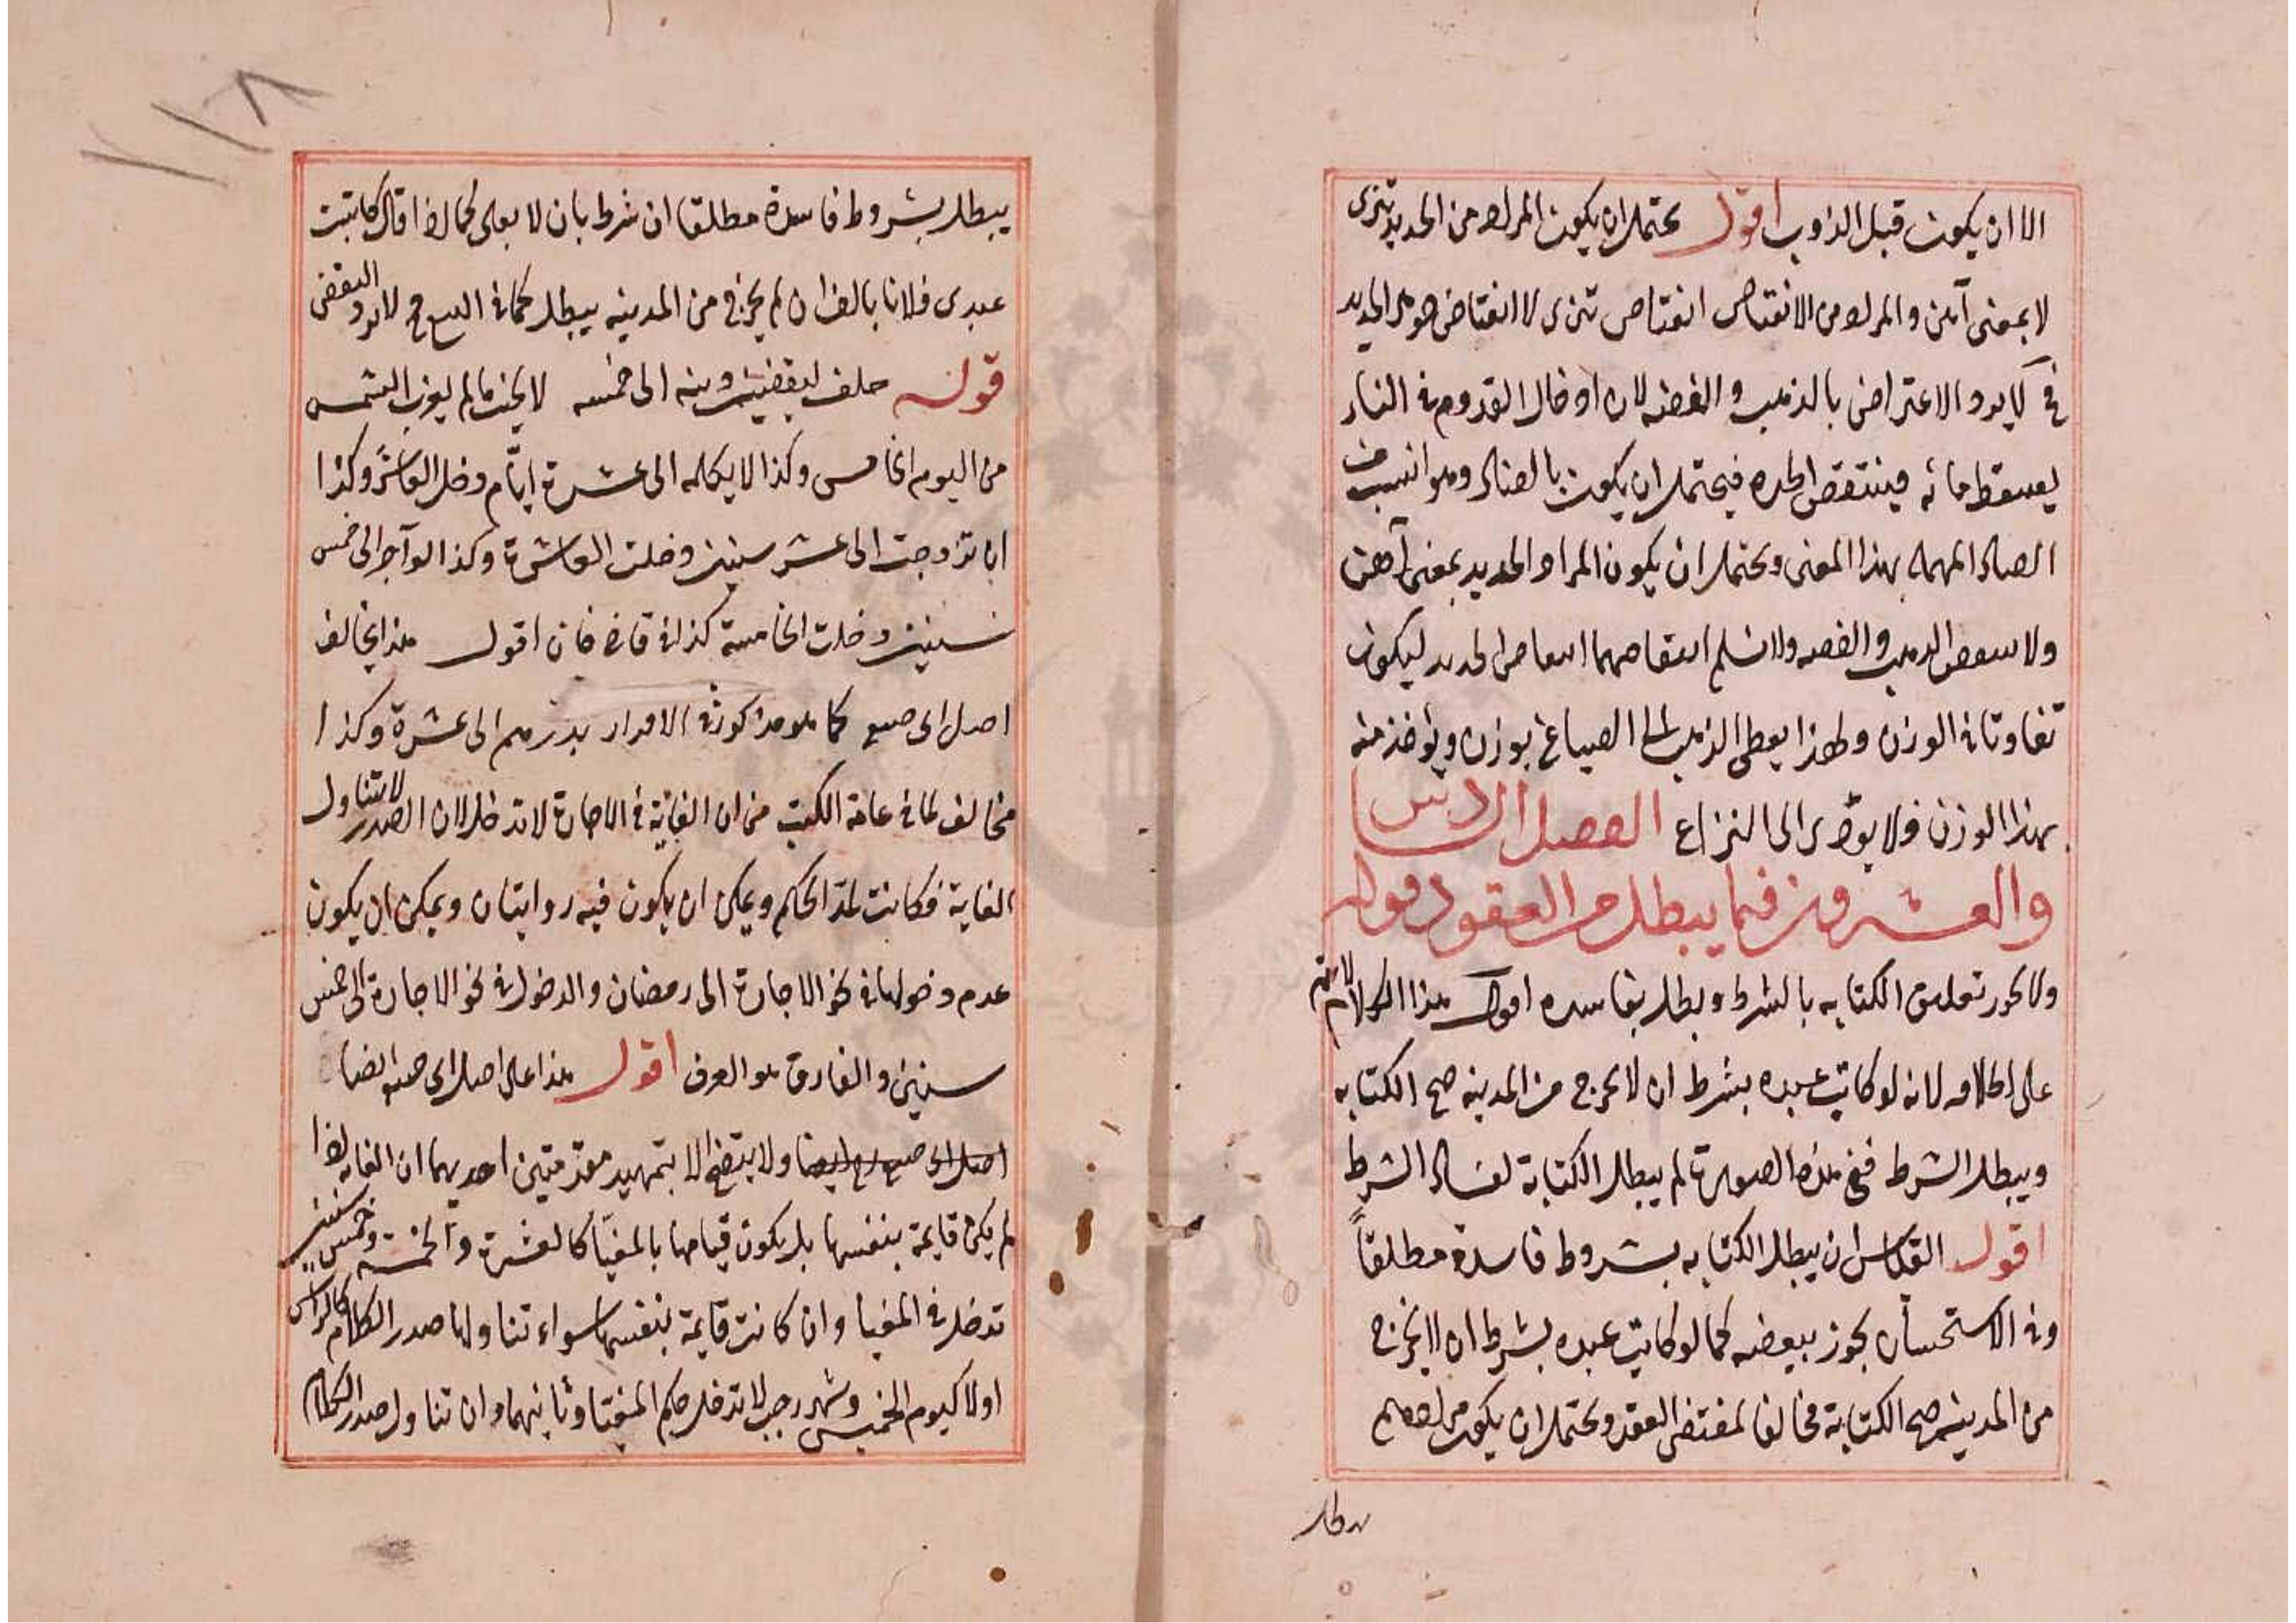 الا ان يكون قبل الذوب اقول يحتمل ان يكون المراد من الحديد تنرى
لا بمعنى آهن والمراد من الانتقاص انتقاص تنرى لا انتقاض جوهر الحديد
فح لا يرد الاعتراض بالذهب والفضه لان ادخال القدوم في النار
يسقط مائه فينتقص الحده فيحتمل ان يكون بالضاد وهو انسب من
الصاد المهمله بهذا المعنى ويحتمل ان يكون المراد الحديد بمعنى آهن
ولا ينتقص الذهب والفضه ولا نسلم انتقاصهما انتقاص الحديد ليكون
تفاوتا في الوزن ولهذا يعطى الذهب الى الصياغ بوزن ويؤخذ منه
بهذا الوزن ولا يؤدى الى النزاع الفصل السادس
والعشرون فيما يبطل من العقود قوله
ولا يجوز تعليق الكتابه بالشرط ويبطل بفاسده اقول هذا الكلام لا يتم
على اطلاقه لانه لو كاتب عبده بشرط ان لا يخرج من المدينه صح الكتابه
ويبطل الشرط ففي هذه الصورة لم يبطل الكتابة لفساد الشرط
اقول القياس ان يبطل الكتابه بشروط فاسدة مطلقاً
وفى الاستحسان يجوز ببعضه كما لو كاتب عبده بشرط ان لا يخرج
من المدينه صح الكتابة مخالفا لمقتضى العقد ويحتمل ان يكون مرادهم
يبطل
١١٨
يبطل بشروط فاسدة مطلقا ان شرط بان لا كما اذا قال كاتبت
عبدى فلانا بالف ان لم يخرج من المدينه يبطل كما في البيع فح لا يرد النقض
قوله حلف ليقضين دينه الى خمسه لا يحنث ما لم يغرب الشمس
من اليوم الخامس وكذا لا يكلمه الى عشرة ايّام دخل العاشر وكذا
ان تزوجت الى عشر سنين دخلت العاشرة وكذا لو آجر الى خمس
سنين دخلت الخامسة كذا في قاضي خان اقول هذا يخالف
اصل ابى كما هو مذكور في الاقرار بدرهم الى عشرة وكذا
مخالف لما في عامة الكتب من ان الغاية في الاجارة لا تدخل لان الصدر لا يتناول
الغاية فكانت لمدّ الحكم ويمكن ان يكون فيه روايتان ويمكن ان يكون
عدم دخولها في نحو الاجارة الى رمضان والدخول في نحو الاجارة الى خمس
سنين والفارق هو العرف اقول هذا على اصل ابى ايضا
ولا يتضح الا بتمهيد مقدمتين احديهما ان الغايه اذا
لم يكن قايمة بنفسها بل يكون قيامها بالمغيّا كالعشرة والخمسه وخمس سنين
تدخل في المغيا وان كانت قايمة بنفسها سواء تناولها صدر الكلام كالراس
اولا كيوم الخميس وشهر رجب لا تدخل حكم المغيّا وثانيهما وان تناول صدر الكلام